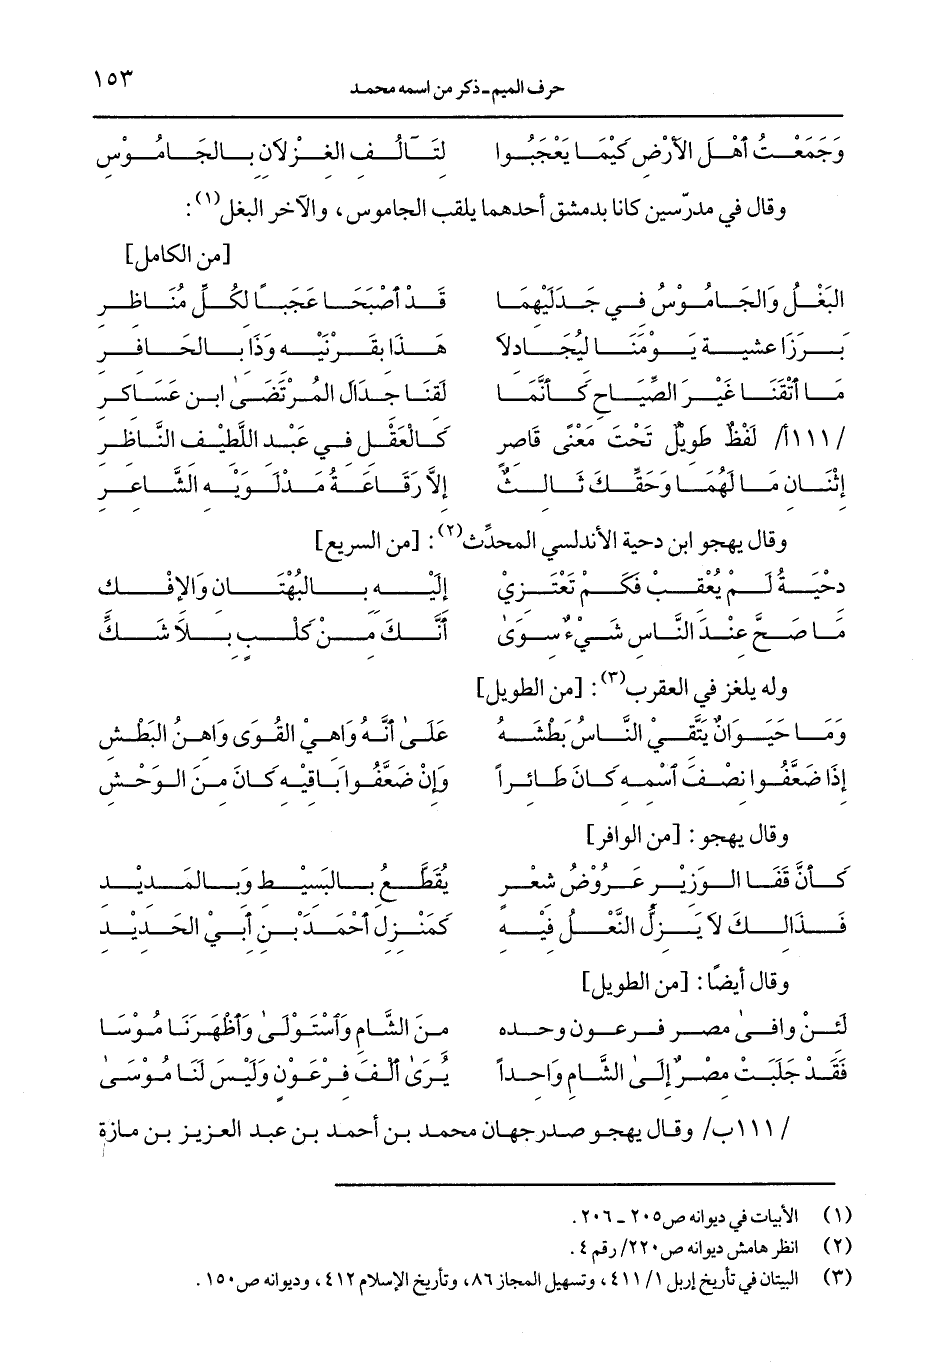 حرف الميم ـ ذكر من اسمه محمد ١٥٣
وَجَمَعْتُ أهْلَ الأرْضِ كَيْمَا يَعْجَبُوا لتَآلُفِ الغِزْلَانِ بِالجَامُوْسِ
وقال في مدرّسين كانا بدمشق أحدهما يلقب الجاموس، والآخر البغل(١):
[من الكامل]
البَغْلُ وَالجَامُوْسُ فِي جَدَلَيْهِمَا قَدْ أصْبَحَا عَجَبًا لِكُلِّ مُنَاظِرِ
بَرَزَا عشية يَوْمَنَا ليُجَادلَا هَذَا بقَرْنَيْهِ وَذَا بِالحَافِرِ
مَا أتْقَنَا غَيْرَ الصِّيَاحِ كَأنَّمَا لَقنَا جِدَالَ المُرْتَضَىٰ ابنِ عَسَاكِرِ
/١١١أ/ لَفْظٌ طَوِيلٌ تَحْتَ مَعْنًى قَاصِرٍ كَالعَقْلِ فِي عَبْدِ اللَّطِيْفِ النَّاظِرِ
إثْنَانِ مَا لَهُمَا وَحَقِّكَ ثَالِثٌ إلَّا رَقَاعَةُ مَدْلَوَيْهِ الشَّاعِرِ
وقال يهجو ابن دحية الأندلسي المحدِّث(٢): [من السريع]
دحْيَةُ لَمْ يُعْقِبْ فَكَمْ تَعْتَزِيْ إلَيْهِ بِالبُهْتَانِ وَالإفْكِ
مَا صَحَّ عِنْدَ النَّاسِ شَيْءٌ سِوَىٰ أنَّكَ مِنْ كَلْبٍ بِلَا شَكِّ
وله يلغز في العقرب(٣): [من الطويل]
وَمَا حَيَوَانٌ يَتَّقِيْ النَّاسُ بَطْشَهُ عَلَىٰ أنَّهُ وَاهِيْ القُوَى وَاهِنُ البَطْشِ
إذَا ضَعَّفُوا نِصْفَ اسْمِهِ كَانَ طَائِراً وَإنْ ضَعَّفُوا بَاقِيْهِ كَانَ مِنَ الوَحْشِ
وقال يهجو: [من الوافر]
كَأنَّ قَفَا الوَزِيْرِ عَرُوْضُ شِعْرٍ يُقَطَّعُ بِالبَسِيْطِ وَبِالمَدِيْدِ
فَذَالِكَ لَا يَزلُّ النَّعْلُ فِيْهِ كَمَنْزِلِ أحْمَدَ بْنِ أبِيْ الحَدِيْدِ
وقال أيضًا: [من الطويل]
لَئِنْ وافىٰ مصر فرعون وحده مِنَ الشَّامِ وَاسْتَوْلَىٰ وَأظْهَرْنَا مُوْسَا
فَقَدْ جَلَبَتْ مصْرٌ إلَىٰ الشَّامِ وَاحِداً يُرَىٰ ألْفَ فِرْعَوْنٍ وَلَيْسَ لَنَا مُوْسَىٰ
/١١١ب/ وقال يهجو صدرجهان محمد بن أحمد بن عبد العزيز بن مازة
(١) الأبيات في ديوانه ص٢٠٥ ـ ٢٠٦.
(٢) انظر هامش ديوانه ص٢٢٠/ رقم ٤.
(٣) البيتان في تأريخ إربل ١/ ٤١١، وتسهيل المجاز ٨٦، وتأريخ الإسلام ٤١٢، وديوانه ص١٥٠.